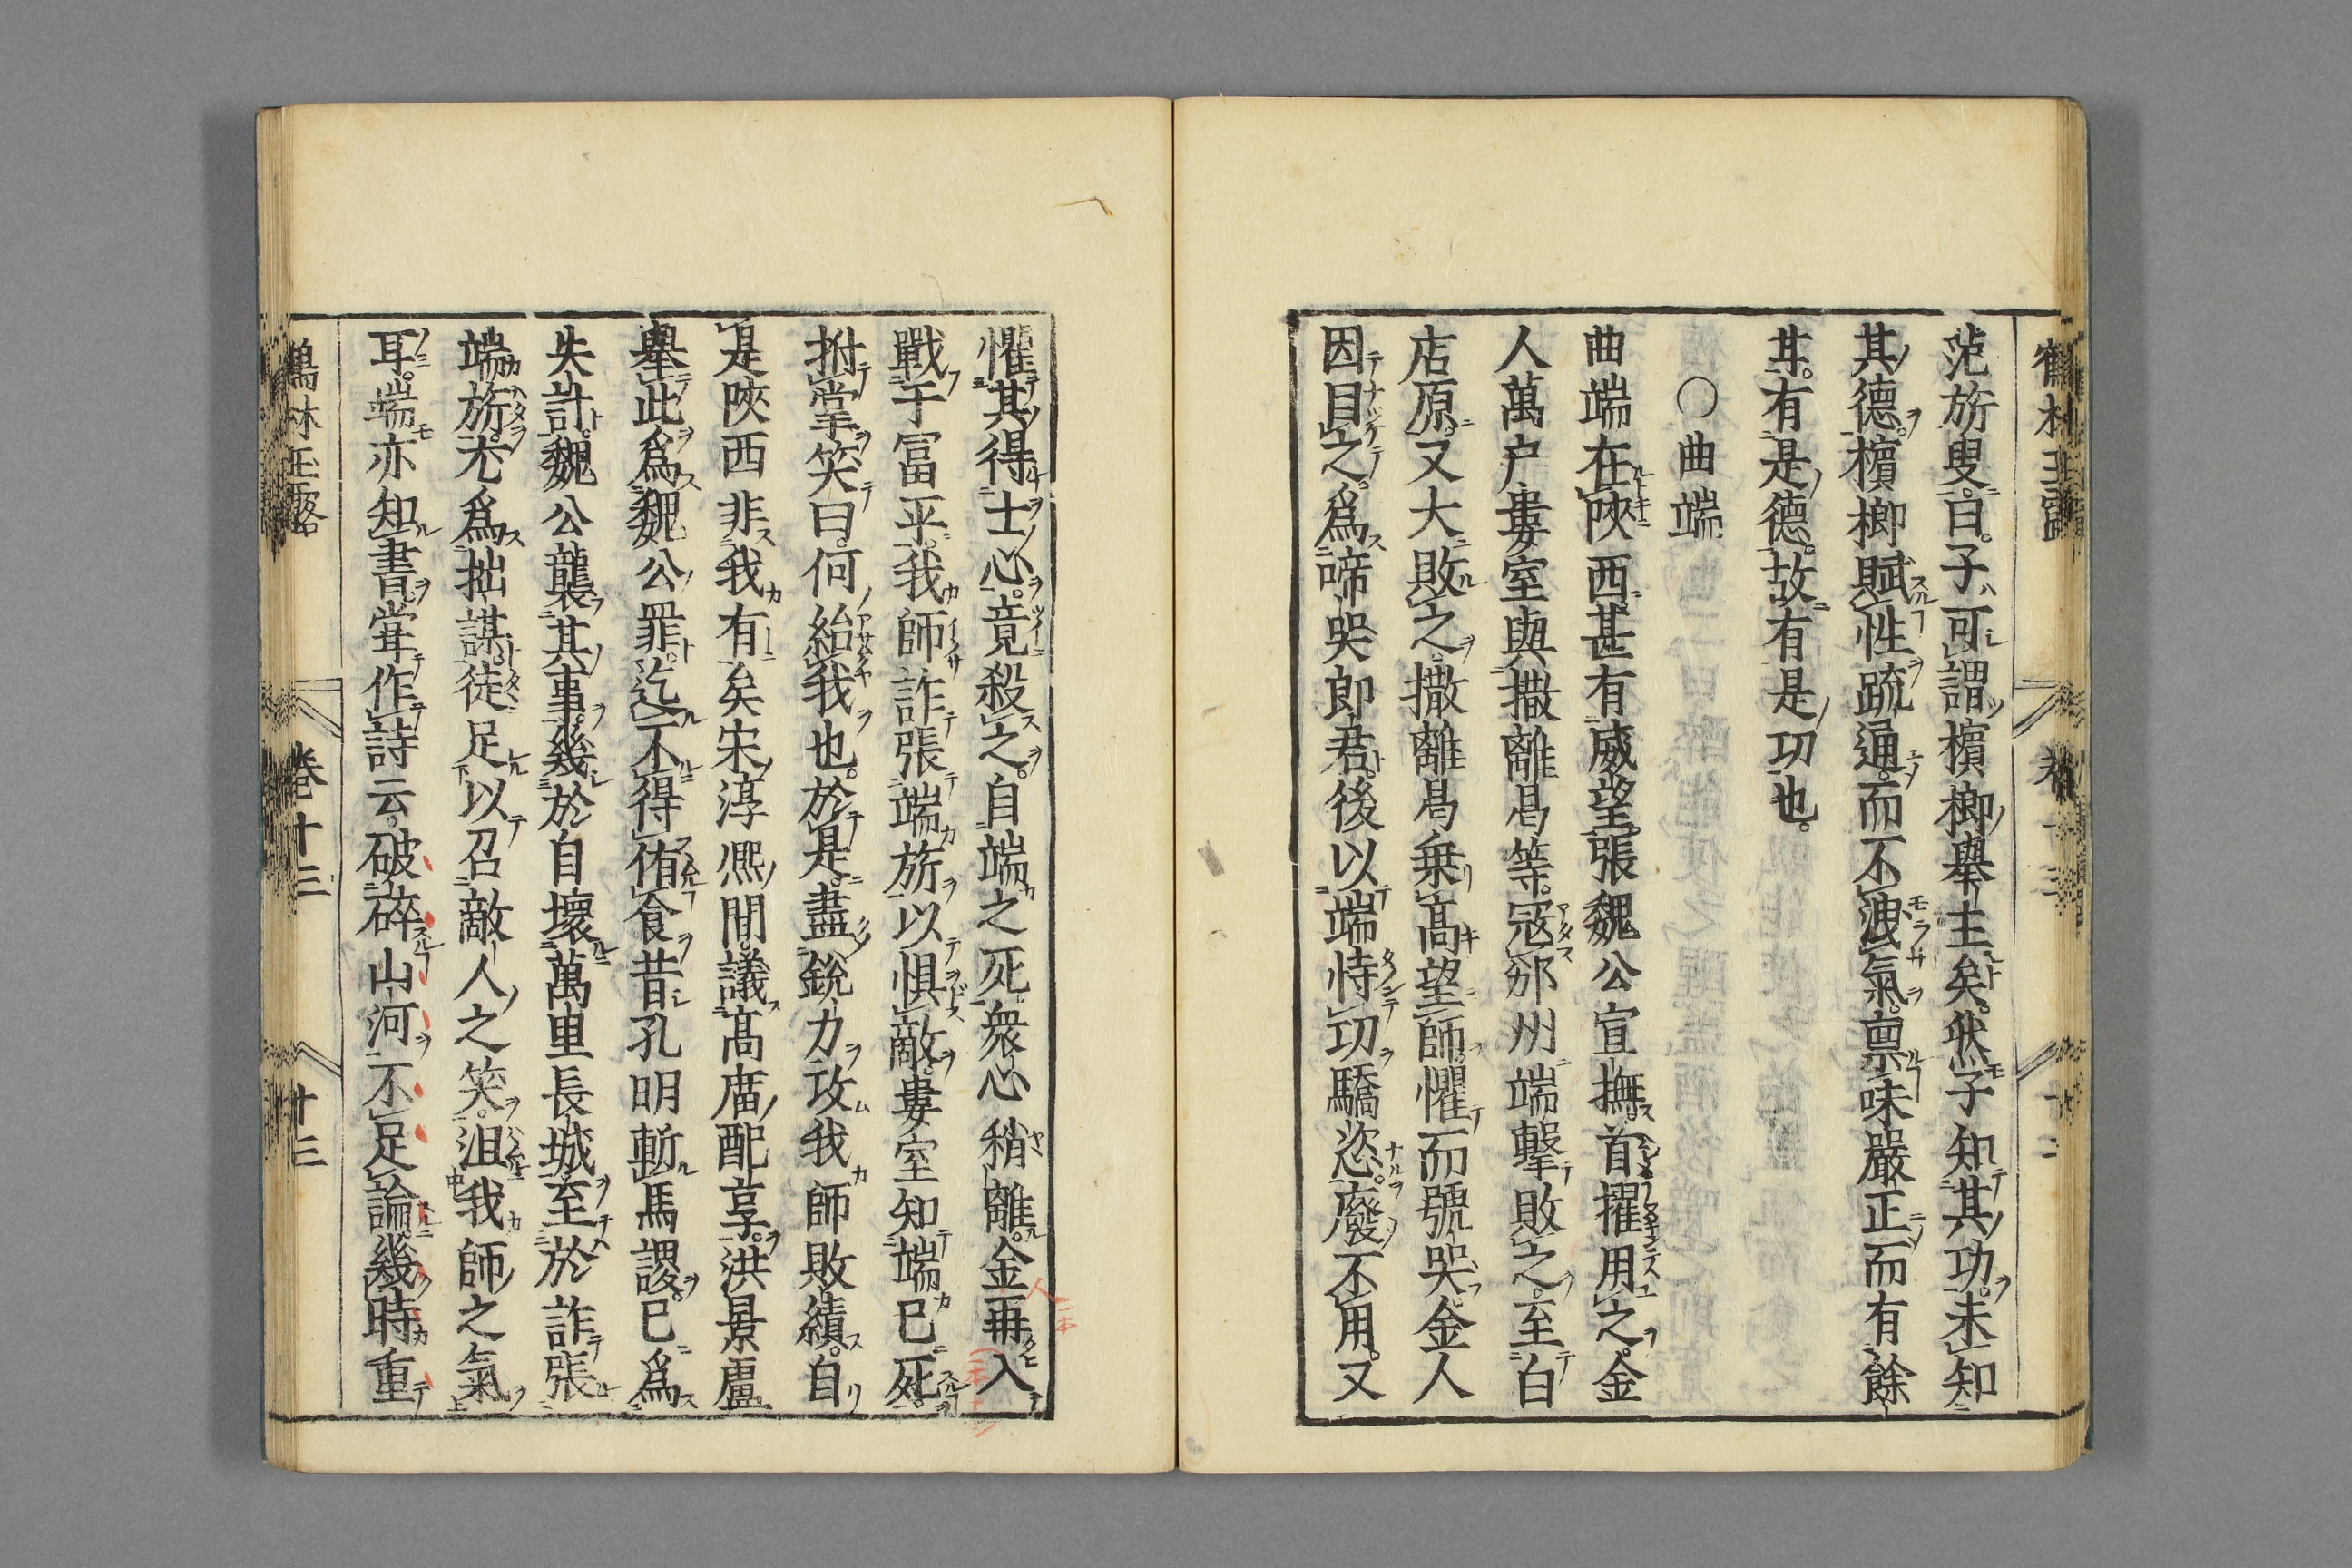 范旂叟曰子可謂檳榔舉主矣然子知其功未知
其德檳榔賦性疏通而不洩氣禀味嚴正而有餘
甘有是德故有是功也
○曲端
曲端在陜西甚有威望張魏公宣撫首擢用之金
人萬户婁室與撒離曷等冦邠州端擊敗之至白
店原又大敗之撒離曷乗髙望師懼而號哭金人
因目之爲啼哭郎君後以端恃功驕恣廢不用又
懼其得士心竟殺之自端之死衆心稍離金再入
戰于冨平我師詐張端旂以惧敵婁室知端已死
拊掌笑曰何紿我也於是盡銳力攻我師敗績自
是陜西非我有矣宋淳熈間議髙庿配享洪景盧
舉此爲魏公罪迄不得侑食昔孔明斬馬謖已爲
失計魏公襲其事幾於自壞萬里長城至於詐張
端旂尤爲拙謀徒足以召敵人之笑沮我師之氣
耳端亦知書甞作詩云破碎山河不足論幾時重
鶴林玉露 卷十三 十三